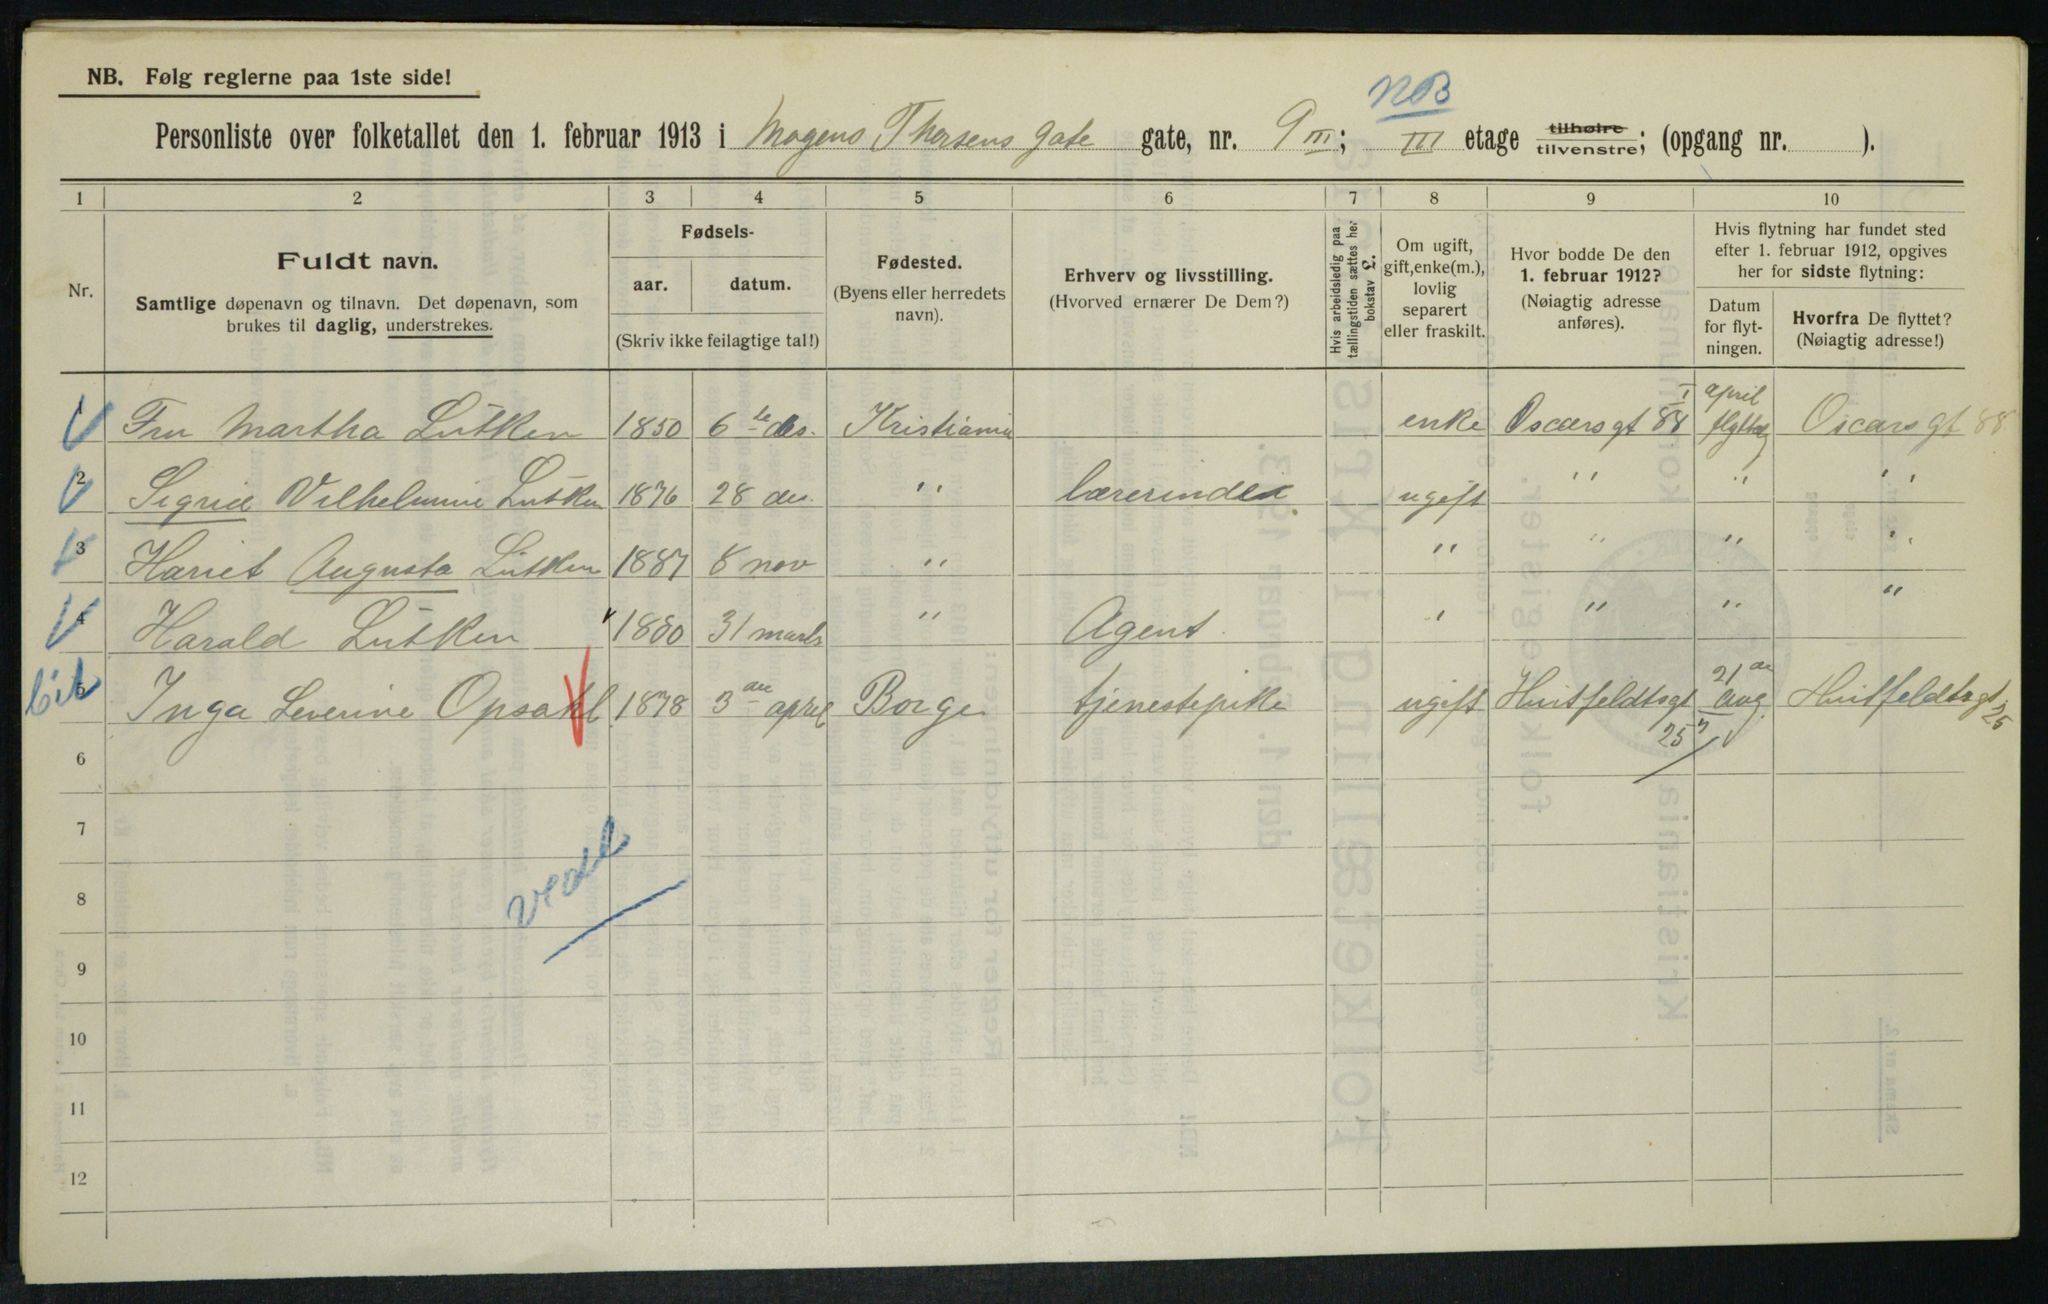 NB. Følg reglerne paa 1ste side!
NB
Personliste over folketallet den 1. februar 1913 i Mogens Thorsens Gate gate, nr. 9 III; III etage tilhøire tilvenstre; (opgang nr. ).
1 2 3 4 5 6 7 8 9 10
Nr.
Fuldt navn.
Samtlige døpenavn og tilnavn. Det døpenavn, som
brukes til daglig, understrekes.
Fødsels-
aar. datum.
(Skriv ikke feilagtige tal!)
Fødested.
(Byens eller herredets
navn).
Erhverv og livsstilling.
(Hvorved ernærer De Dem?)
Hvis arbeidsledig paa
tællingstiden sættes her
bokstav L.
Om ugift,
gift, enke(m.),
lovlig
separert
eller fraskilt.
Hvor bodde De den
1. februar 1912?
(Nøiagtig adresse
anføres).
Hvis flytning har fundet sted
efter 1. februar 1912, opgives
her for sidste flytning:
Datum
for flyt-
ningen.
Hvorfra De flyttet?
(Nøiagtig adresse!)
1 Fru Martha Lütken 1850 6te des. Kristiania enke Oscarsgt 88 I april flyttet Oscarsgt 88
2 Sigrid Vilhelmine Lütken 1876 28 des. " lærerinde ugift " " "
3 Harriet Augusta Lütken 1887 8 nov " " " " "
4 Harald Lütken 1880 31 marts " Agent " " " "
5 Inga Severine Opsahl 1878 3 april Borge tjenestepike ugift Huitfeldtsgt 25 21 aug Huitfeldtsgt 25
6
7
8
9
10
11
12